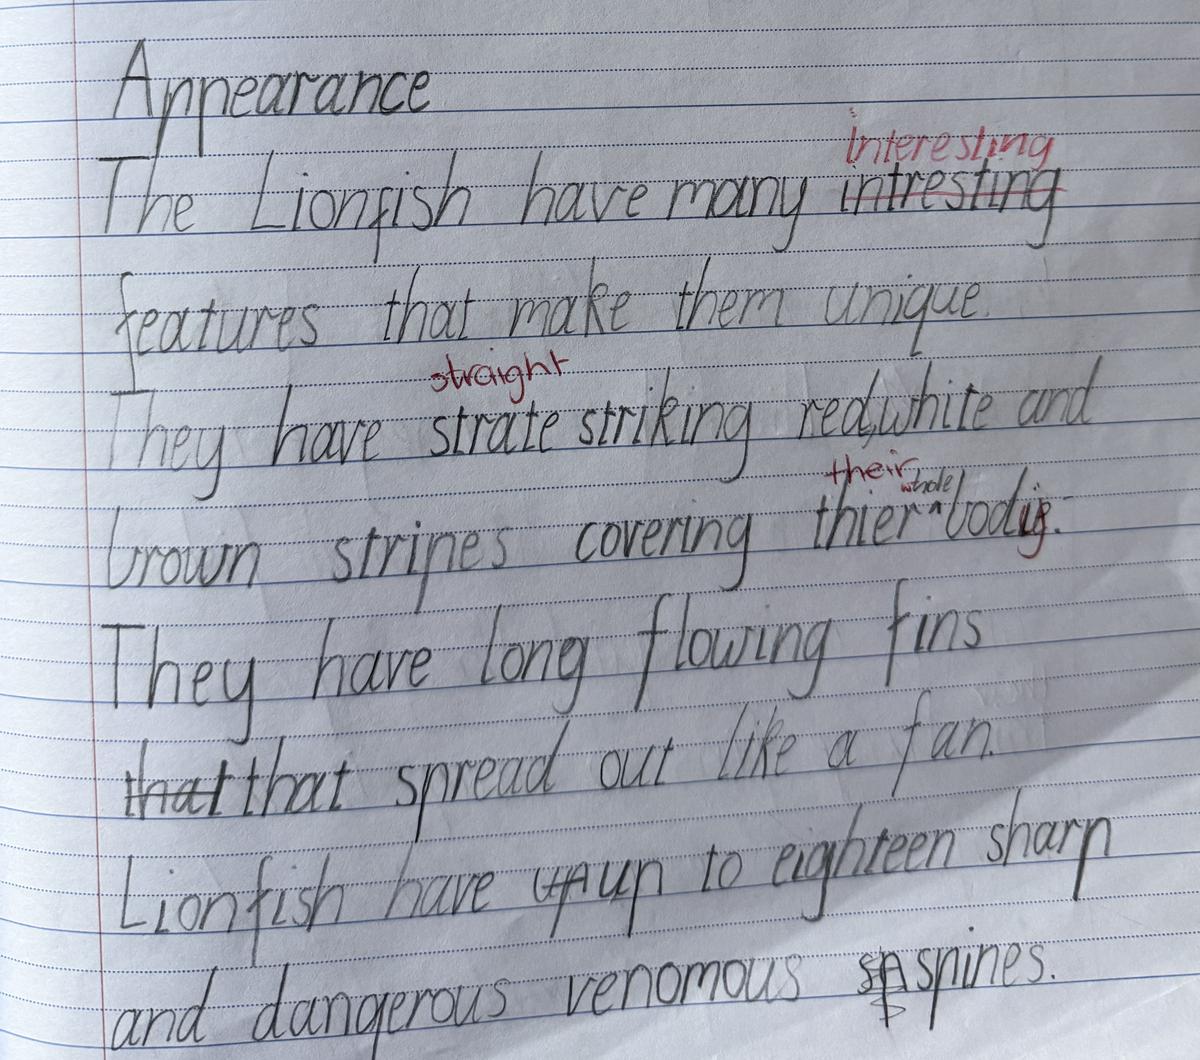 Appearance
interesting
The Lionfish have many intresting
features that make them unique.
straight
They have strate striking red, white and
their whole
brown stripes covering thier ^ bodys.
They have long flowing fins
that that spread out like a fan.
Lionfish have up up to eighteen sharp
and dangerous venomous sp spines.